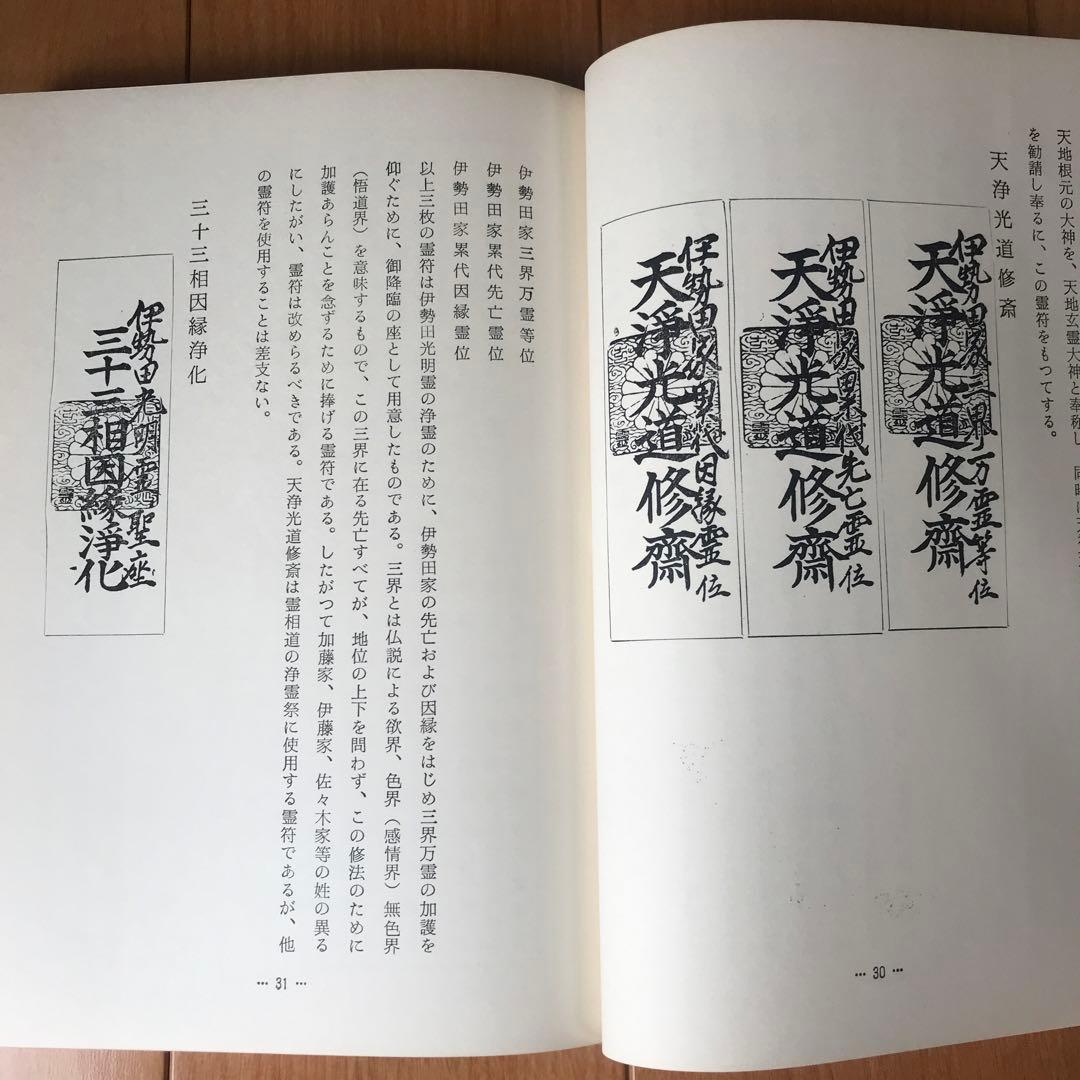 天地根元の大神を、天地玄霊大神と奉称し
を勧請し奉るに、この霊符をもつてする。
天浄光道修斎
伊勢田家三界万霊等位
天淨光道修齋
伊勢田家累代先亡霊位
天淨光道修齋
伊勢田家累代因縁霊位
天淨光道修齋
… 30 …
伊勢田家三界万霊等位
伊勢田家累代先亡霊位
伊勢田家累代因縁霊位
以上三枚の霊符は伊勢田光明霊の浄霊のために、伊勢田家の先亡および因縁をはじめ三界万霊の加護を
仰ぐために、御降臨の座として用意したものである。三界とは仏説による欲界、色界（感情界）無色界
（悟道界）を意味するもので、この三界に在る先亡すべてが、地位の上下を問わず、この修法のために
加護あらんことを念ずるために捧げる霊符である。したがつて加藤家、伊藤家、佐々木家等の姓の異る
にしたがい、霊符は改めらるべきである。天浄光道修斎は霊相道の浄霊祭に使用する霊符であるが、他
の霊符を使用することは差支ない。
三十三相因縁浄化
伊勢田光明霊聖座
三十三相因縁淨化
… 31 …